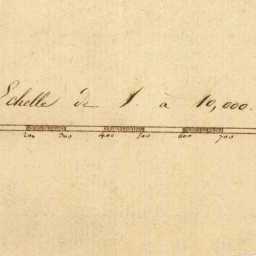 Echelle de 1. à 10,000.
200 300 400 500 600 700